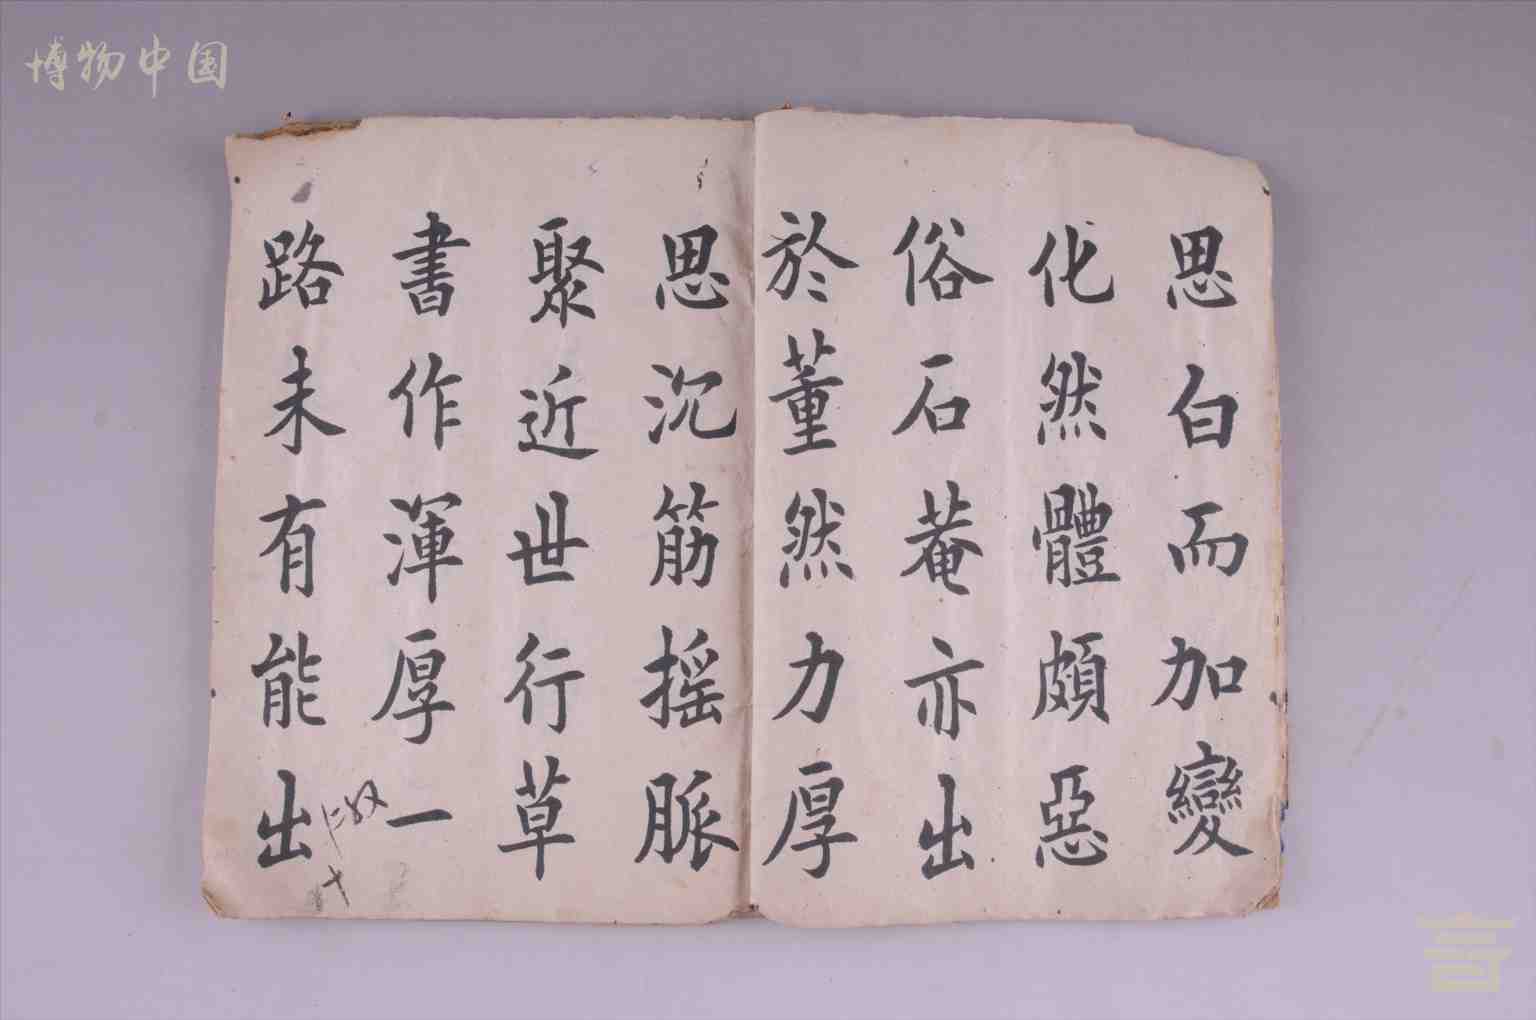 博物中国
思白而加變
化然體頗惡
俗石菴亦出
於董然力厚
思沉筋摇脈
聚近世行草
書作渾厚一
路未有能出